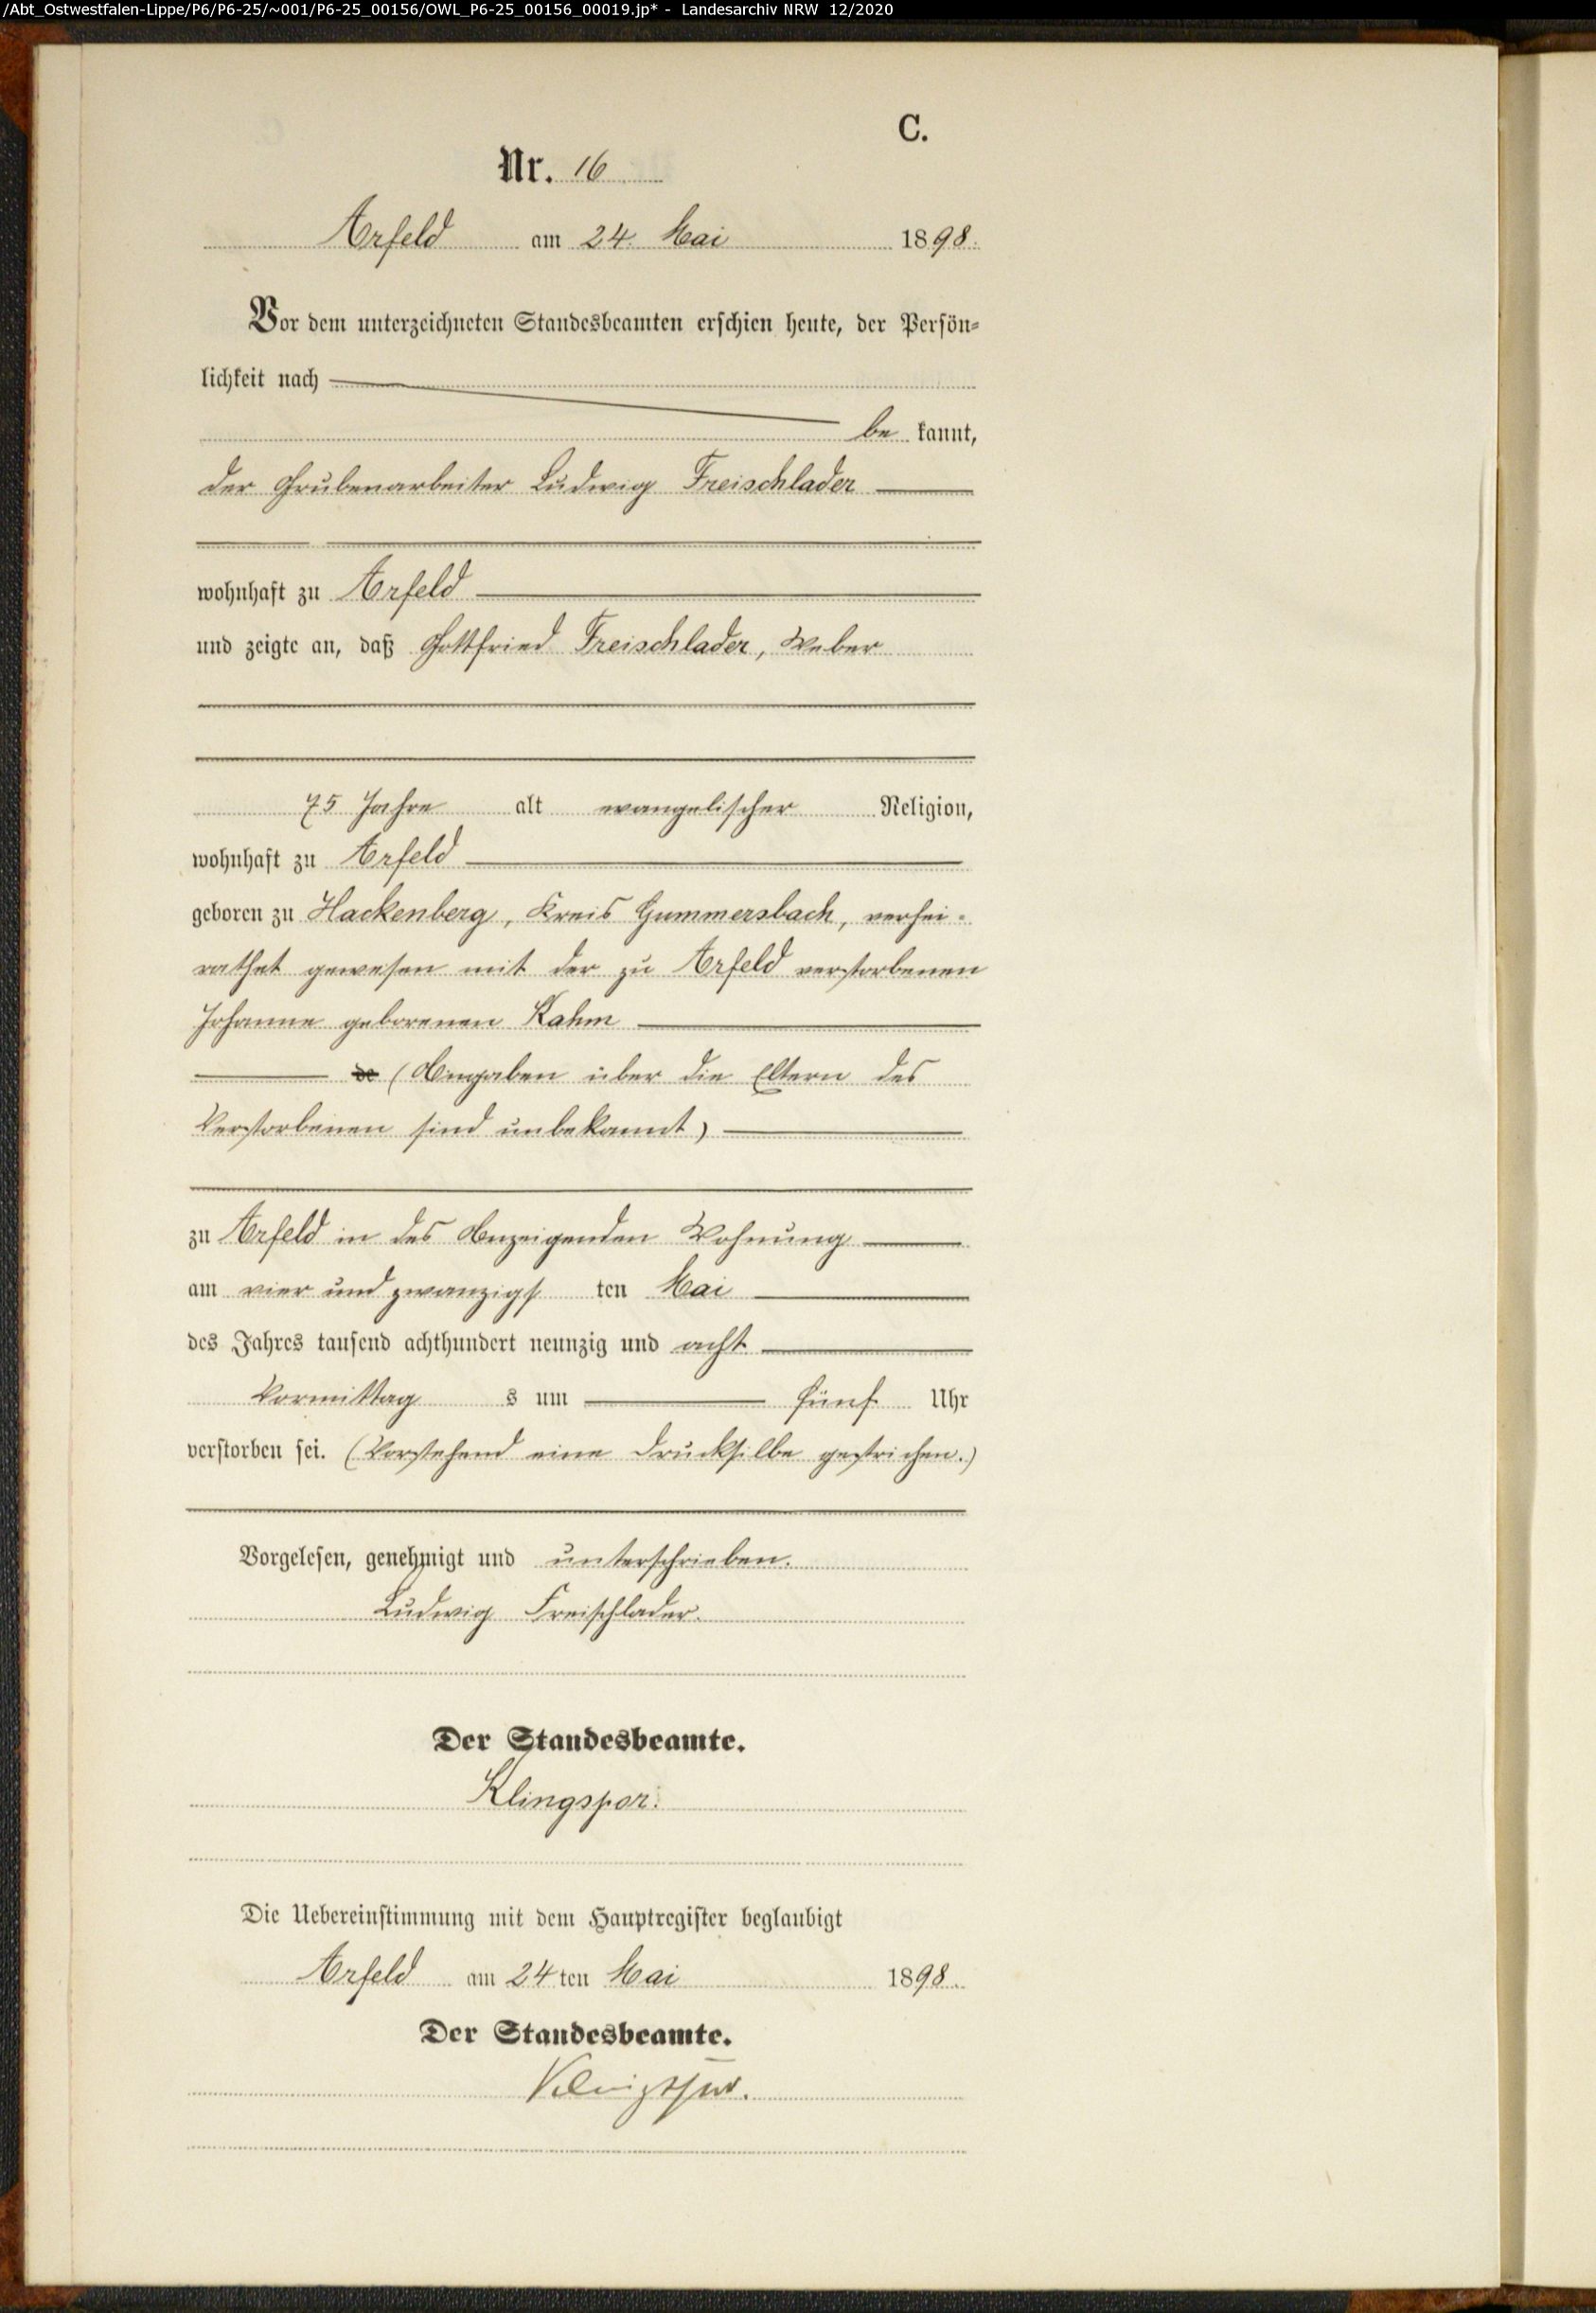 /Abt_Ostwestfalen-Lippe/P6/P6-25/~001/P6-25_00156/OWL_P6-25_00156_00019.jp* - Landesarchiv NRW 12/2020
C.
Nr. 16
Arfeld am 24. Mai 1898.
Vor dem unterzeichneten Standesbeamten erschien heute, der Persön-
lichkeit nach
be kannt,
der Grubenarbeiter Ludwig Freischlader
wohnhaft zu Arfeld
und zeigte an, daß Gottfried Freischlader, Weber
75 Jahre alt evangelischer Religion,
wohnhaft zu Arfeld
geboren zu Hackenberg, Kreis Gummersbach, verhei-
rathet gewesen mit der zu Arfeld verstorbenen
Johanne geborenen Kahm
de (Angaben über die Eltern des
Verstorbenen sind unbekannt)
zu Arfeld in des Anzeigenden Wohnung
am vier und zwanzigs ten Mai
des Jahres tausend achthundert neunzig und acht
Vormittag s um fünf Uhr
verstorben sei. (Vorstehend eine Drucksilbe gestrichen.)
Vorgelesen, genehmigt und unterschrieben.
Ludwig Freischlader.
Der Standesbeamte.
Klingspor.
Die Uebereinstimmung mit dem Hauptregister beglaubigt
Arfeld am 24 ten Mai 1898.
Der Standesbeamte.
Klingspor.